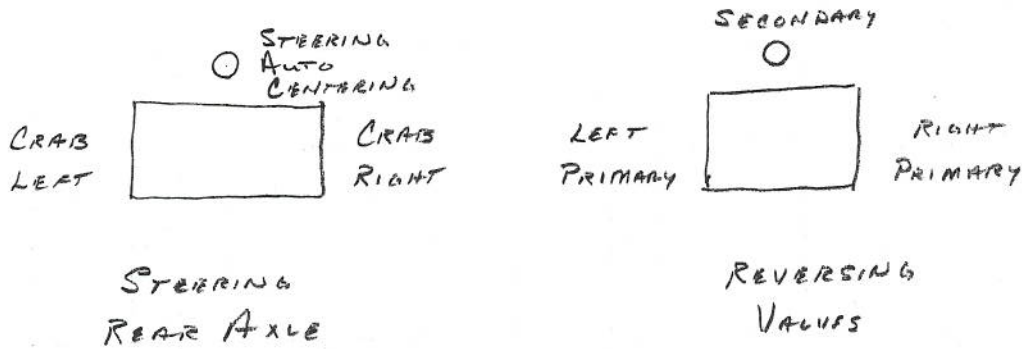 STEERING
AUTO
CENTERING
CRAB
LEFT
CRAB
RIGHT
STEERING
REAR AXLE
SECONDARY
LEFT
PRIMARY
RIGHT
PRIMARY
REVERSING
VALVES